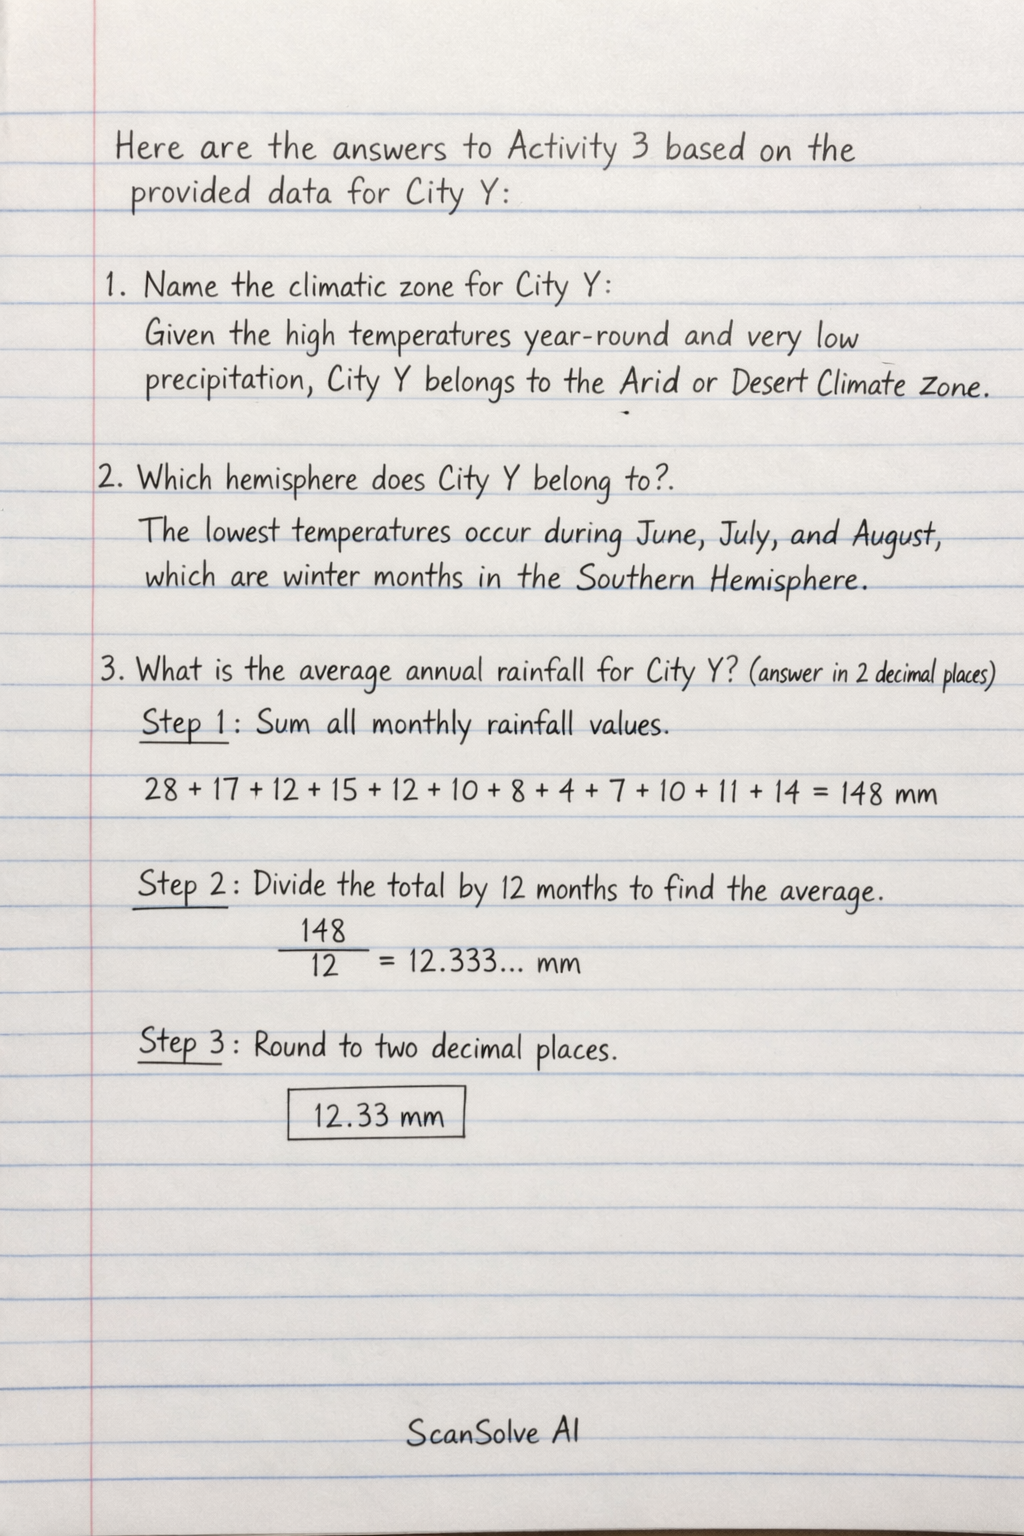 Here are the answers to Activity 3 based on the
provided data for City Y:
1. Name the climatic zone for City Y:
Given the high temperatures year-round and very low
precipitation, City Y belongs to the Arid or Desert Climate Zone.
2. Which hemisphere does City Y belong to?.
The lowest temperatures occur during June, July, and August,
which are winter months in the Southern Hemisphere.
3. What is the average annual rainfall for City Y? (answer in 2 decimal places)
Step 1: Sum all monthly rainfall values.
28 + 17 + 12 + 15 + 12 + 10 + 8 + 4 + 7 + 10 + 11 + 14 = 148 mm
Step 2: Divide the total by 12 months to find the average.
148
12 = 12.333... mm
Step 3: Round to two decimal places.
12.33 mm
ScanSolve AI